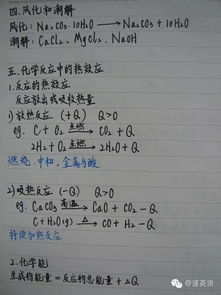 四.风化和潮解
风化:Na₂CO₃·10H₂O → Na₂CO₃+10H₂O
潮解:CaCl₂、MgCl₂、NaOH
五.化学反应中的热效应
1.反应的热效应
反应放出或吸收热量
1)放热反应 (+Q) Q>0
eg. C+O₂ 点燃→ CO₂+Q
2H₂+O₂ 点燃→ 2H₂O+Q
燃烧、中和、金属与酸
2)吸热反应 (-Q) Q>0
eg. CaCO₃ 高温→ CaO+CO₂-Q
C+H₂O(g) △→ CO+H₂-Q
持续加热反应
2.化学能
生成物能量=反应物总能量+△Q
奇速英语